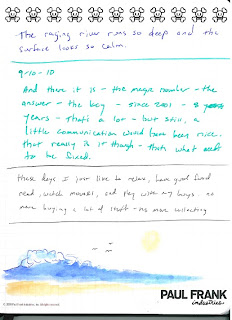 The raging river runs so deep and the
surface looks so calm.
9-10-10
And there it is - the magic number - the
answer - the key - since 2001 - 8
years - that's a lot - but still, a
little communication would have been nice.
that really is it though - that's what
to be fixed.
these days I just like to relax, have good food
read, watch movies, and play with my boys, no
more buying a lot of stuff - no more collecting
PAUL FRANK
industries